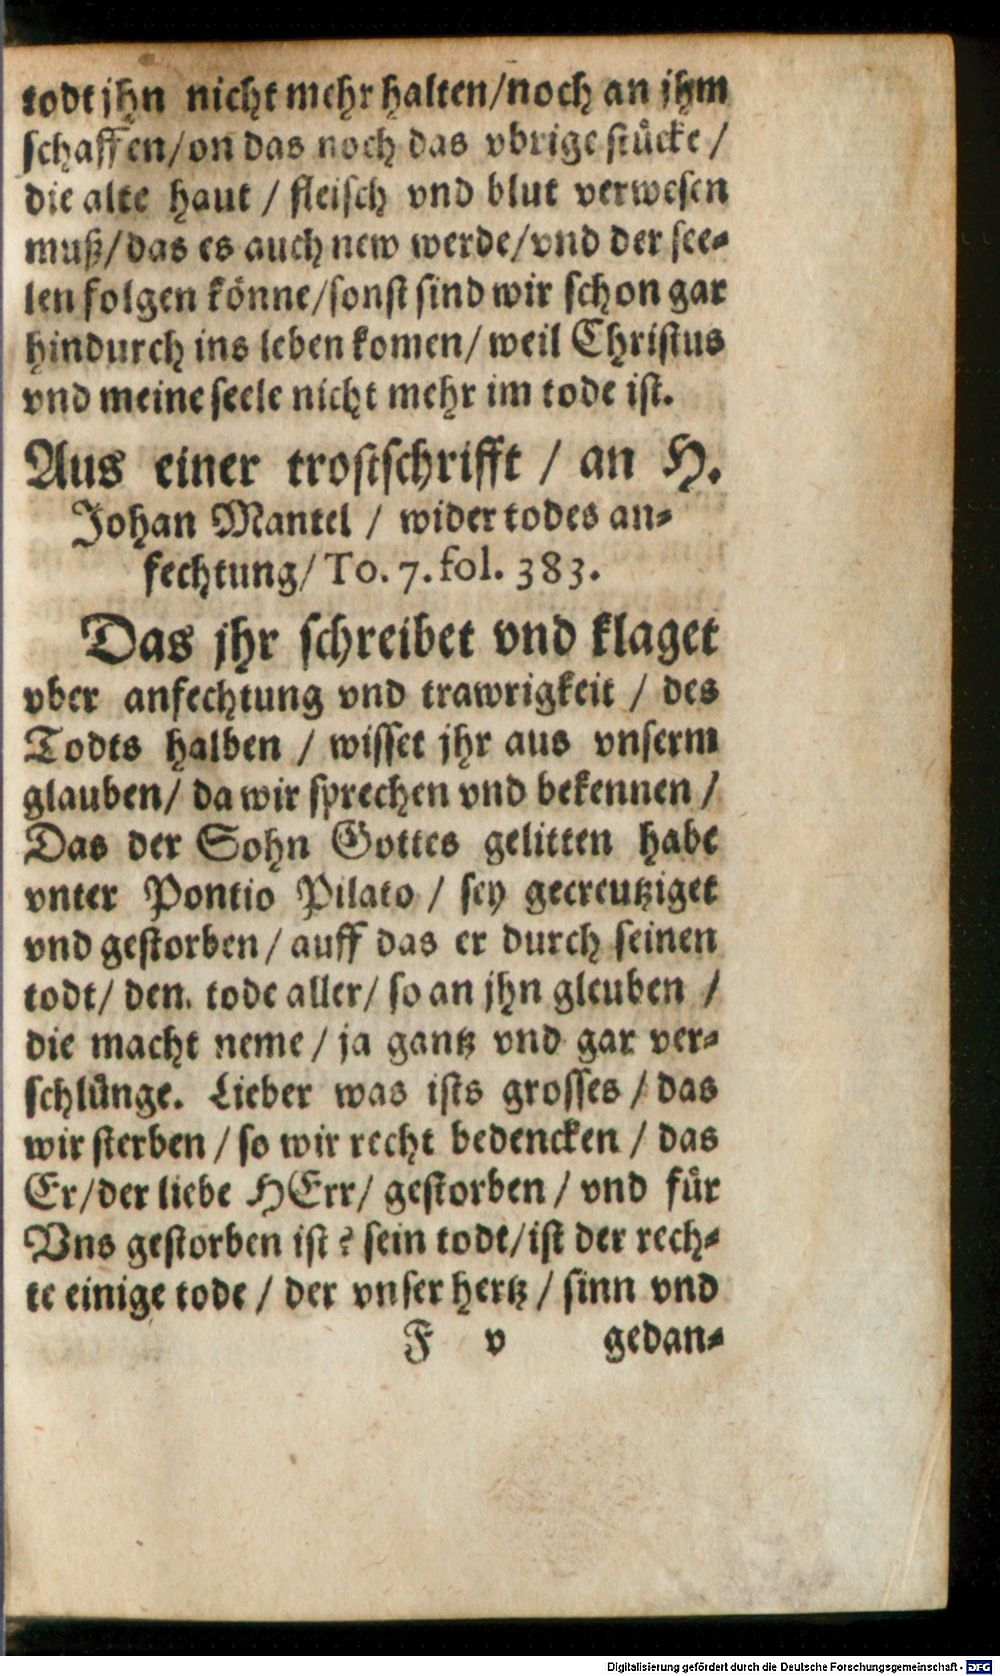 todt jhn nicht mehr halten/noch an jhm
schaffen/on das noch das vbrige stücke/
die alte haut / fleisch vnd blut verwesen
muß/das es auch new werde/vnd der see-
len folgen könne/sonst sind wir schon gar
hindurch ins leben komen/weil Christus
vnd meine seele nicht mehr im tode ist.
Aus einer trostschrifft / an H.
Johan Mantel / wider todes an-
fechtung/To. 7. fol. 383.
Das jhr schreibet vnd klaget
vber anfechtung vnd trawrigkeit / des
Todts halben / wisset jhr aus vnserm
glauben/ da wir sprechen vnd bekennen /
Das der Sohn Gottes gelitten habe
vnter Pontio Pilato / sey gecreutziget
vnd gestorben/ auff das er durch seinen
todt/ den. tode aller/ so an jhn gleuben /
die macht neme / ja gantz vnd gar ver-
schlünge. Lieber was ists grosses / das
wir sterben / so wir recht bedencken / das
Er/der liebe HErr/ gestorben / vnd für
Vns gestorben ist? sein todt/ist der rech-
te einige tode / der vnser hertz / sinn vnd
F v gedan-
Digitalisierung gefördert durch die Deutsche Forschungsgemeinschaft - DFG